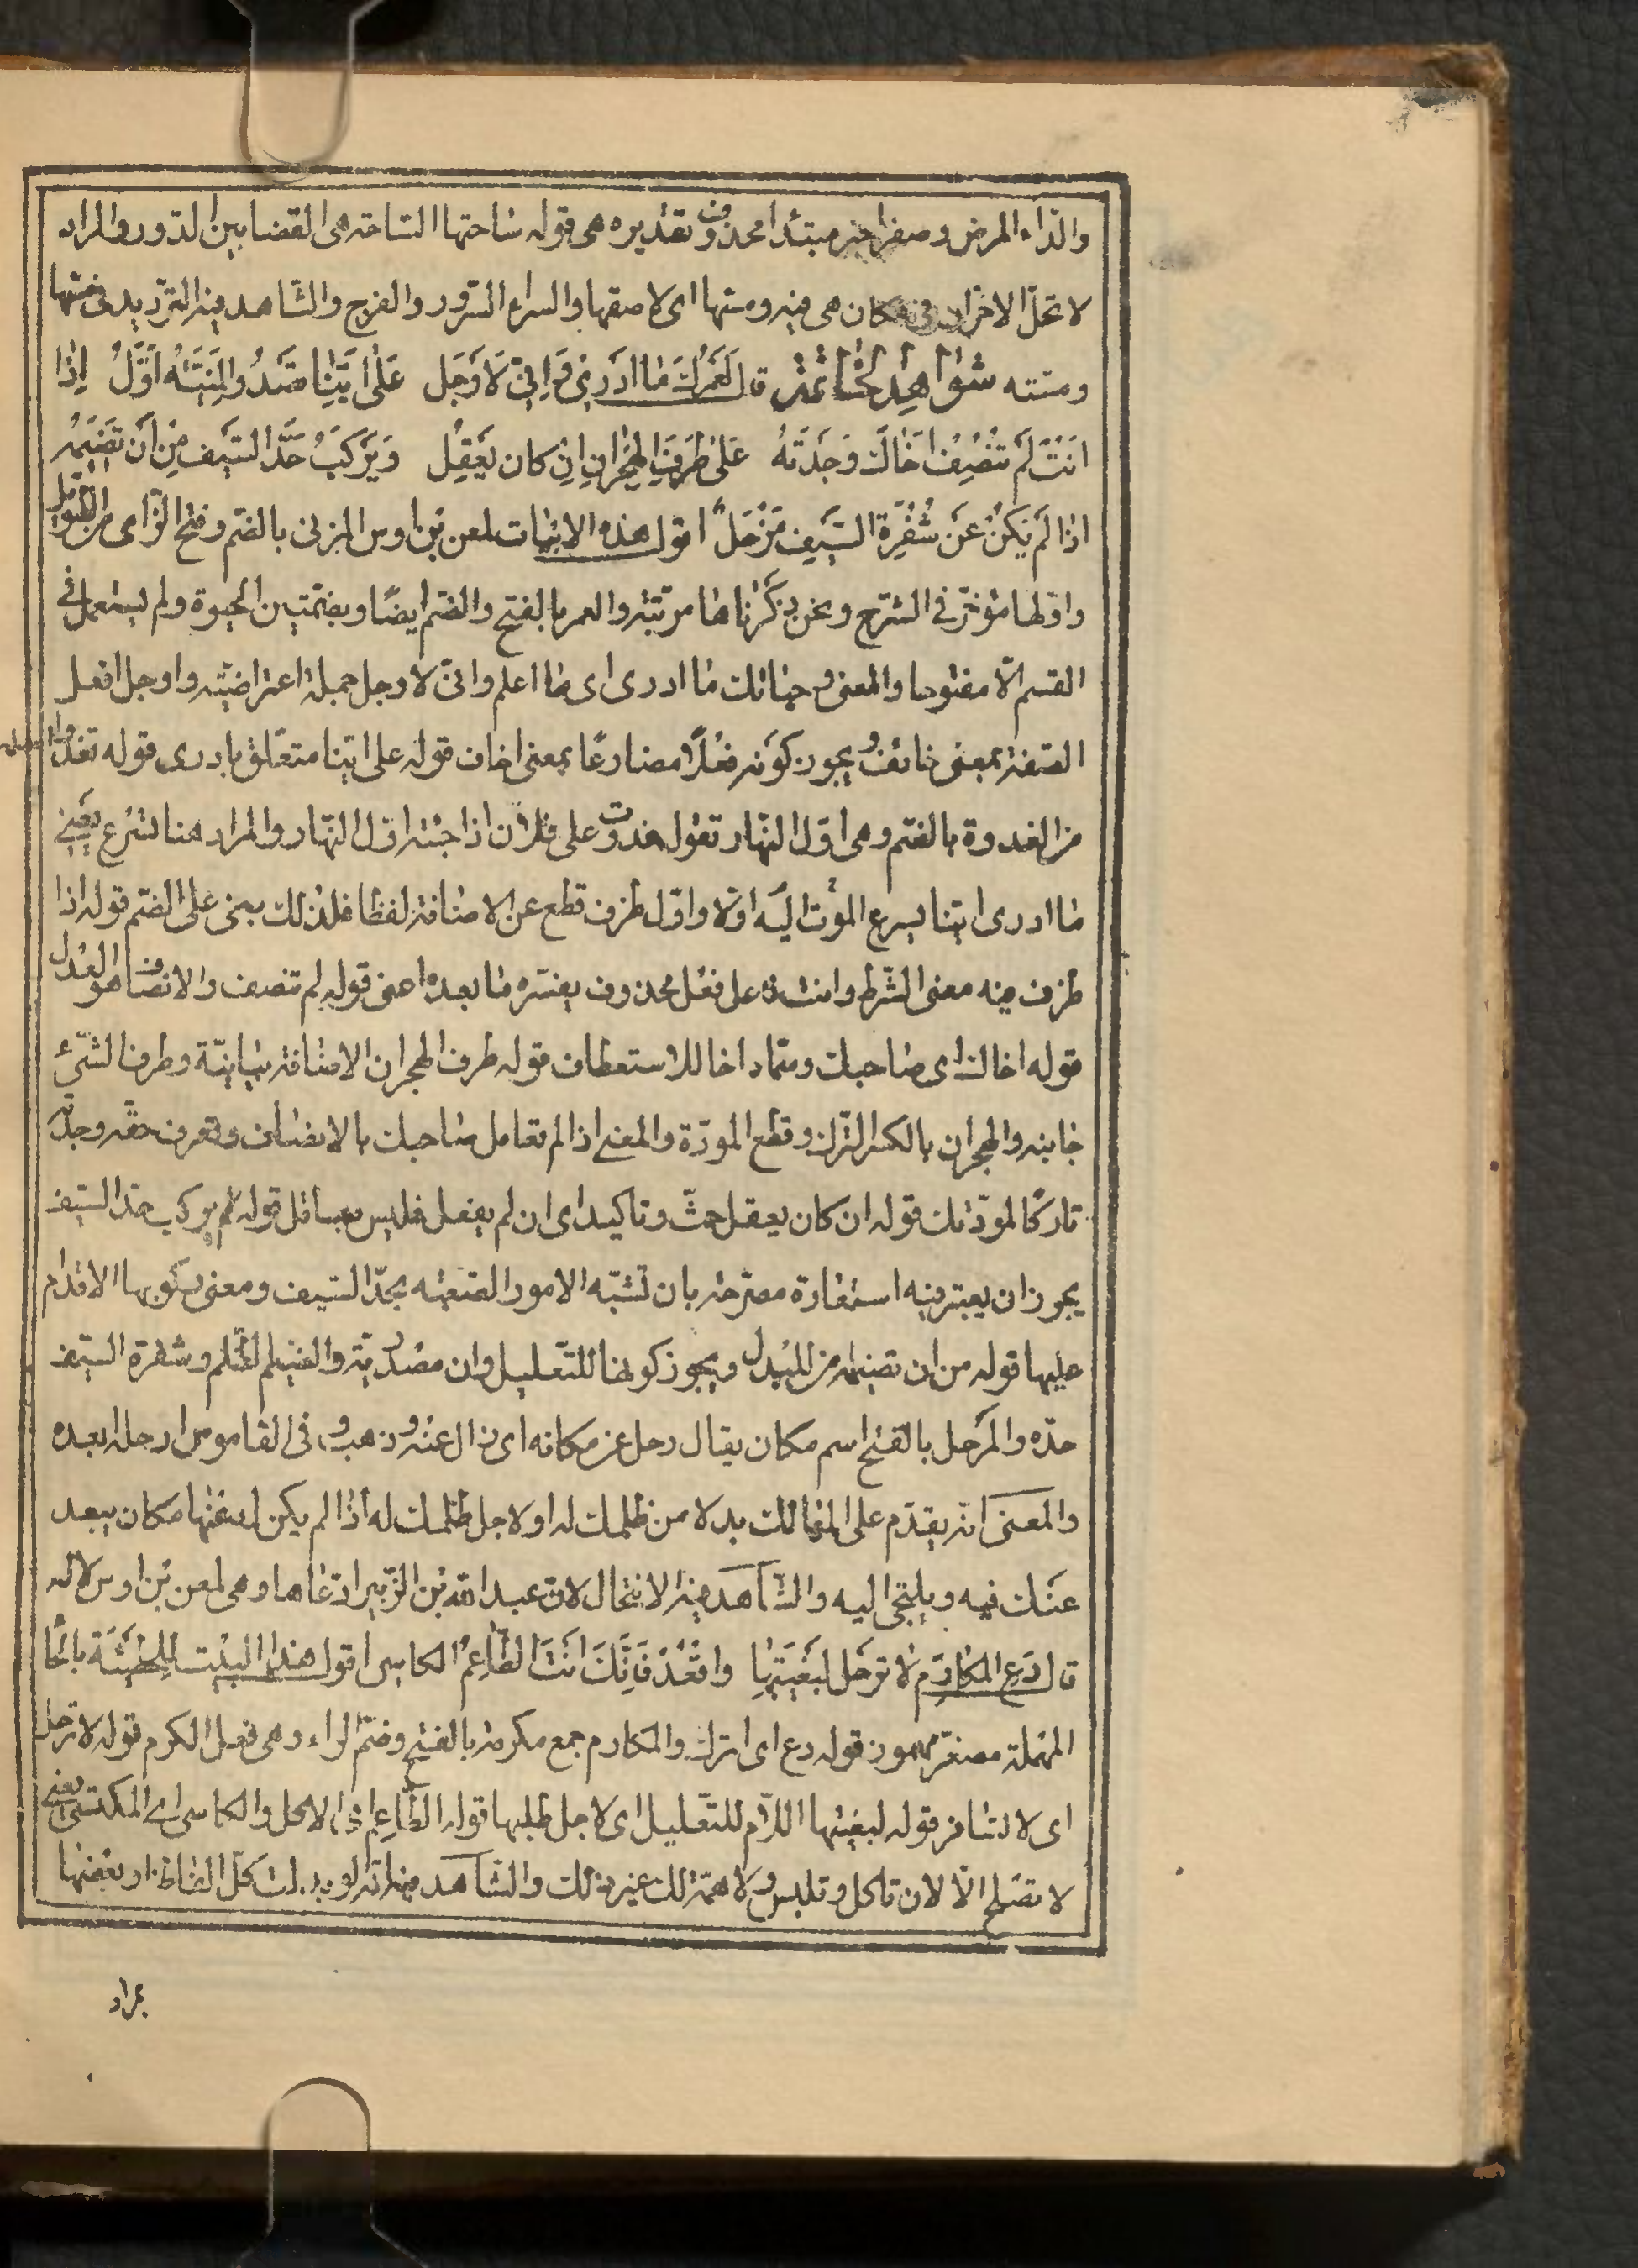 والدّاء المرض وصفراء خبر مبتدأ محذوف تقديره هى قوله ساحتها الساحة هى الفضا بين الدّور والمراد
لا تحلّ الاحزان فى مكان هى فيه ومستها اى لاصقها والسراء السّرور والفرح والشّاهد فيه الترديد فى مستها
ومسّته شواهد الخاتمة قال لَعَمْرُكَ مٰا اَدْرِى وَاِنّى لَاَوْجَل عَلىٰ اَيِّنٰا تَغْدُو الْمَنِيَّةُ اَوَّلُ اِذٰا
اَنْتَ لَم تُنْصِفْ اَخٰاكَ وَجَدْتَهُ عَلىٰ طَرَفِ الهِجْرانِ اِنْ كان يَعْقِل وَيَرْكَبُ حَدَّ السَّيف مِن اَن تَضيمَهُ
اذٰا لَم يَكنْ عَن شَفْرَةِ السَّيف مَزْحَلٌ اقول هذه الابيات لمعن بن اوس المزنى بالضّم وفتح الزاى من الطويل
واوّلها مؤخّر فى الشرح ونحن ذكرناها مرتّبة والعمر بالفتح والضّم ايضًا وبضمّتين الحيوة ولم يستعمل فى
القسم الّا مفتوحا والمعنى وحياتك مٰا ادرى اى مٰا اعلم وانّى لاوجل جملة اعتراضيّة واوجل افعل
الصّفة بمعنى خائف ويجوز كونه فعلًا مضارعًا بمعنى اخاف قوله على ايّنا متعلّق بادرى قوله تغدوا
من الغدوة بالضّم وهى اوّل النّهار تقول غدوت على فلان اذا جئته اوّل النّهار والمراد هنا تسرع يعنى
مٰا ادرى ايّنا يسرع الموت اليه اوّلا واوّل ظرف قطع عن الاضافة لفظا فلذلك بنى على الضّم قوله اذا
ظرف فيه معنى الشّرط وانت فاعل فعل محذوف يفسّره مٰا بعده اعنى قوله لم تنصف والانصاف هو العدل
قوله اخاك اى صاحبك وسمّاه اخا للاستعطاف قوله طرف الهجران الاضافة بيانيّة وطرف الشّىء
جانبه والهجران بالكسر الترك وقطع المودّة والمعنى اذا لم تعامل صاحبك بالانصاف وتعرف حقّه وجدته
تاركًا لمودّتك قوله ان كان يعقل حثّ وتاكيد اى ان لم يفعل فليس بعاقل قوله يركب حدّ السّيف
يجوز ان يعتبر فيه استعارة مصرّحة بان تشبّه الامور الصّعبة بحدّ السّيف ومعنى ركوبها الاقدام
عليها قوله من ان تضيمه من للبدل ويجوز كونها للتّعليل وان مصدريّة والضّيم الظّلم وشفرة السّيف
حدّه والمزحل بالفتح اسم مكان يقال زحل عن مكانه اى زال عنه وذهب وفى القاموس ازحله ابعده
والمعنى انّه يقدّم على المهالك بدلا من ظلمك له او لاجل ظلمك له اذا لم يكن له عنها مكان يبعد
عنك فيه ويلتجى اليه والشّاهد فيه الانتحال لانّ عبد الله بن الزّبير ادّعاها وهى لمعن بن اوس لا له
قال دَعِ المكارمَ لا ترحل لِبُغْيَتِهٰا واقْعُدْ فَاِنَّكَ اَنْتَ الطّاعِمُ الكاسى اقول هذا البيت للحطيئة بالحا
المهملة مصغّر مهموز قوله دع اى اترك والمكارم جمع مكرمة بالفتح وضمّ الراء وهى فعل الكرم قوله لا ترحل
اى لا تسافر قوله لبغيتها اللّام للتّعليل اى لاجل طلبها قوله الطّاعم اى الاكل والكاسى اى المكتسى يعنى
لا تصلح الّا لان تاكل وتلبس ولا همّة لك غير ذلك والشّاهد فيه انّه لو بدلت كلّ الفاظه او بعضها
بمراد